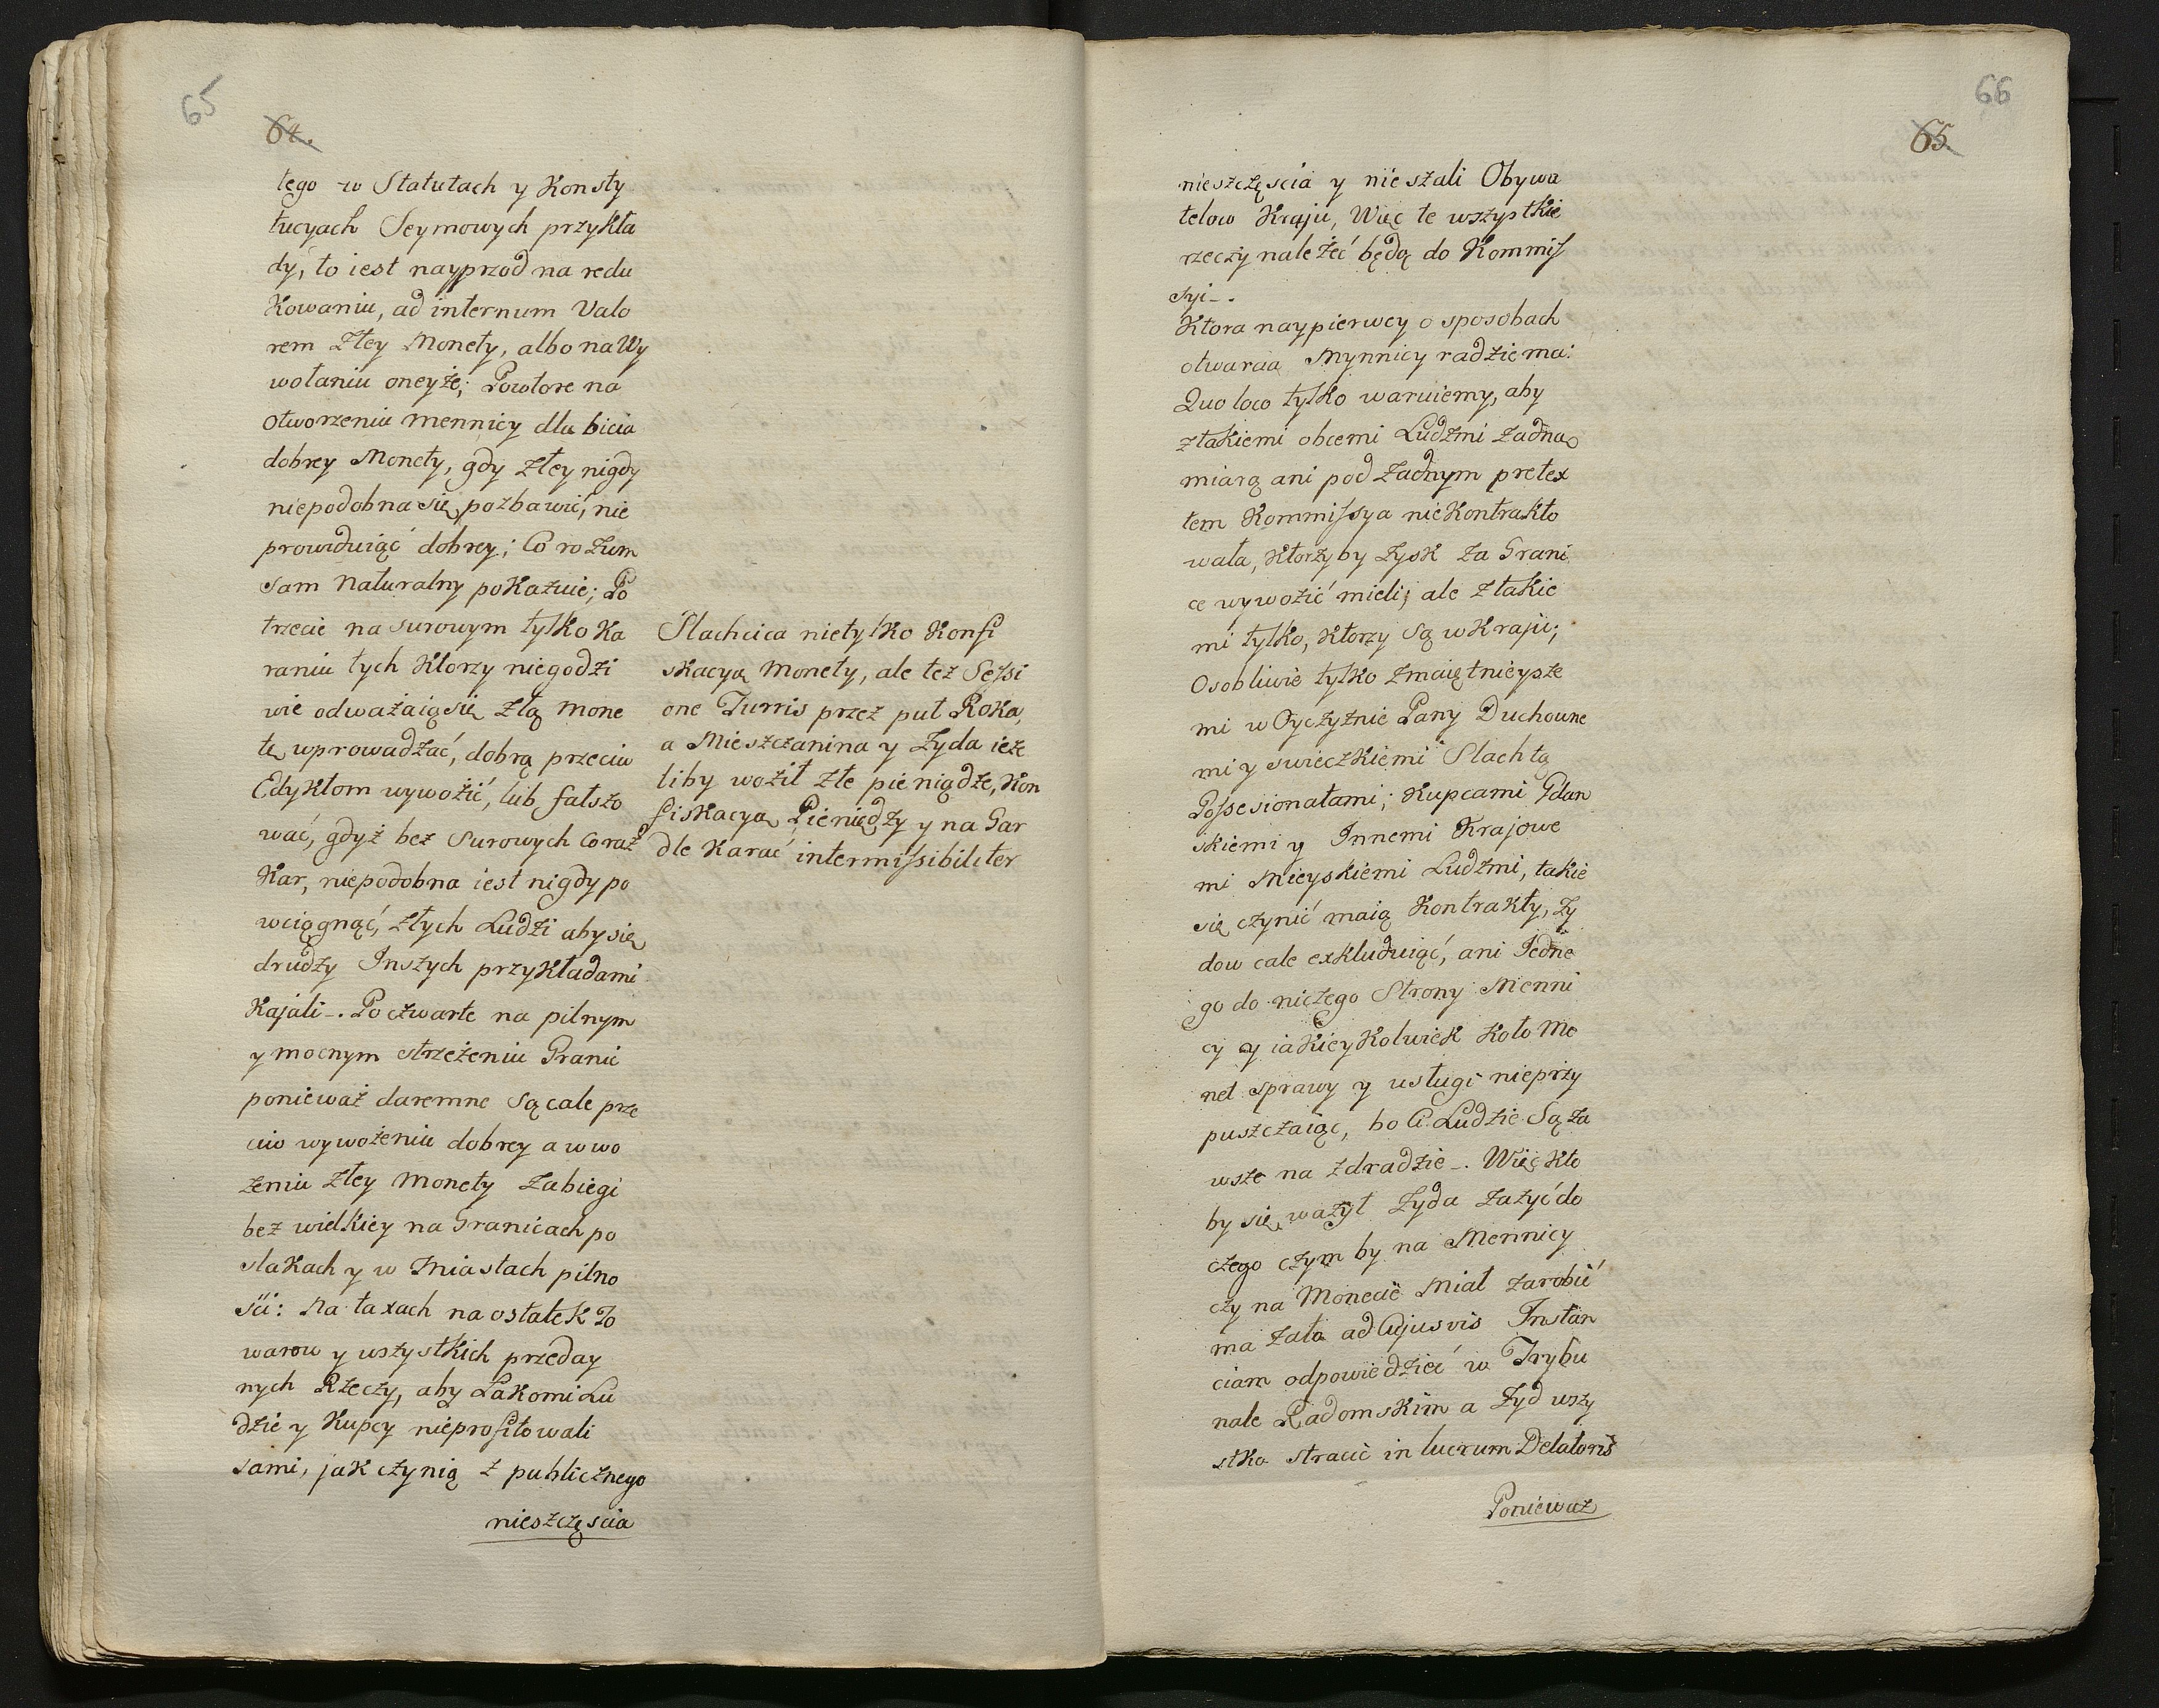 65
64.
tego w Statutach y Konsty
tucyach Seymowych przykła
dy, to iest nayprzod na redu
kowaniu, ad internum Valo
rem złey Monety, albo na Wy
wołaniu oneyże; Powtore na
otworzeniu mennicy dla bicia
dobrey Monety, gdy złey nigdy
niepodobna się pozbawić, nie
prowiduiąć dobrey; Co rozum
sam naturalny pokazuie; Po
trzecie na surowym tylko ka
raniu tych ktorzy niegodzi
wie odważaią się złą mone
tę wprowadzać, dobrą przeciw
Edyktom wywozić, lub fałszo
wać, gdyż bez surowych coraz
Kar, niepodobna iest nigdy po
wciągnąć, złych Ludzi aby się
drudzy Inszych przykładami
Kajali-. Po czwarte na pilnym
y mocnym strzeżeniu Granic
ponieważ daremne są cale prze
ciw wywożeniu dobrey a wwo
żeniu złey Monety zabiegi
bez wielkiey na Granicach po
slakach y w Miastach pilno
ści: Na taxach na ostatek To
warow y wszystkich przeday
nych Rzeczy, aby Łakomi Lu
dzie y Kupcy nieprofitowali
sami, jak czynią z publicznego
nieszczęscia
Slachcica nietylko Konfi
skacyą Monety, ale też Sessi
one Turris przez puł Roku,
a Mieszczanina y Zyda ieże
liby woził złe pieniądze, Kon
fiskacyą Pieniędzy y na Gar
dle karać intermissibiliter
66
65.
nieszczęscia y nieszali Obywa
telow Kraju, Więc te wszystkie
rzeczy należeć będą do Kommis
syi-.
Ktora naypierwey o sposobach
otwarcia Mynnicy radzić ma:
Quo loco tylko waruiemy, aby
z takiemi obcemi Ludzmi żadną
miarą ani pod żadnym pretex
tem Kommissya nie kontrakto
wała, ktorzyby zysk za Grani
ce wywozić mieli; ale z takie
mi tylko, ktorzy są w Kraju;
Osobliwie tylko zmaiętnieysze
mi w Oyczyznie Pany Duchowne
mi y swieczkiemi Slachtą
Possesionatami; Kupcami Gdan
skiemi y Innemi Krajowe
mi Mieyskiemi Ludzmi, takie
się czynić maią Kontrakty, Zy
dow cale exkluduiąć, ani Jedne
go do niczego Strony Menni
cy y iakieykolwiek koło Mo
net sprawy y usługi nieprzy
puszczaiąc, bo Ci Ludzie Są za
wsze na zdradzie-. Więc kto
by się ważył Zyda zażyć do
czego czym by na Mennicy
czy na Monecie miał zarobić
ma zato ad Cujusvis Instan
ciam odpowiedzieć w Trybu
nale Radomskim a Zyd wszy
stko stracić in lucrum Delatoris
Ponieważ